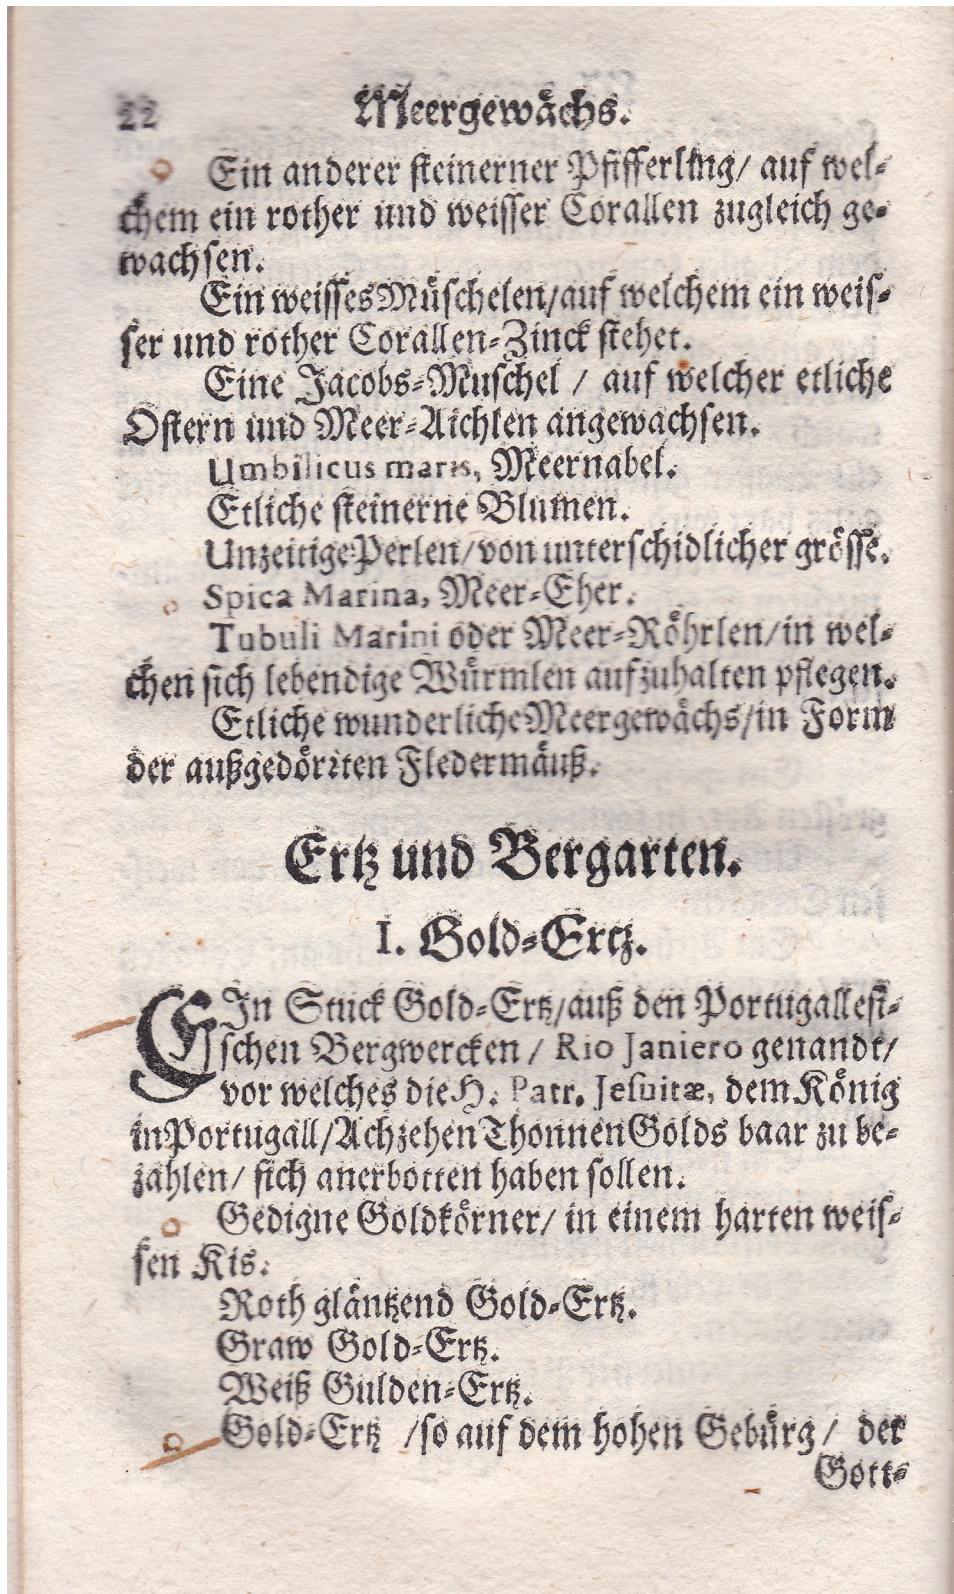 22 Meergewächs.
Ein anderer steinerner Pfifferling/ auf wel-
chem ein rother und weisser Corallen zugleich ge-
wachsen.
Ein weisses Müschelen/auf welchem ein weis-
ser und rother Corallen-Zinck stehet.
Eine Jacobs-Muschel / auf welcher etliche
Ostern und Meer-Aichlen angewachsen.
Umbilicus maris, Meernabel.
Etliche steinerne Blumen.
Unzeitige Perlen/von unterschidlicher grösse.
Spica Marina, Meer-Eher.
Tubuli Marini oder Meer-Röhrlen/in wel-
chen sich lebendige Würmlen aufzuhalten pflegen.
Etliche wunderliche Meergewächs/in Form
der außgedörrten Fledermäuß.
Ertz und Bergarten.
I. Gold-Ertz.
EIn Stuck Gold-Ertz/auß den Portugallesi-
schen Bergwercken / Rio Janiero genandt/
vor welches die H. Patr. Jesuitæ, dem König
in Portugall/Achzehen Thonnen Golds baar zu be-
zahlen/ sich anerbotten haben sollen.
Gedigne Goldkörner/ in einem harten weis-
sen Kis.
Roth gläntzend Gold-Ertz.
Graw Gold-Ertz.
Weiß Gulden-Ertz.
Gold-Ertz /so auf dem hohen Gebürg/ der
Gott-